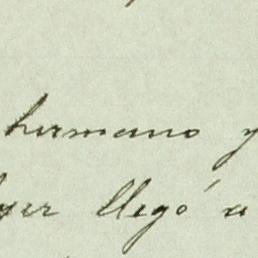 hermano y
ayer llegó a